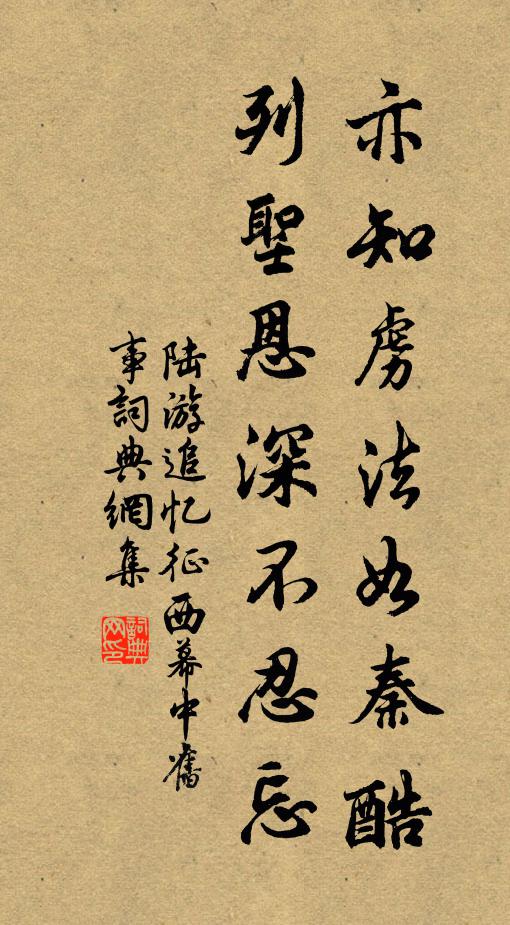 亦知虜法如秦酷
列聖恩深不忍忘
陆游追忆征西幕中舊
事詞典網集
詞典
网印